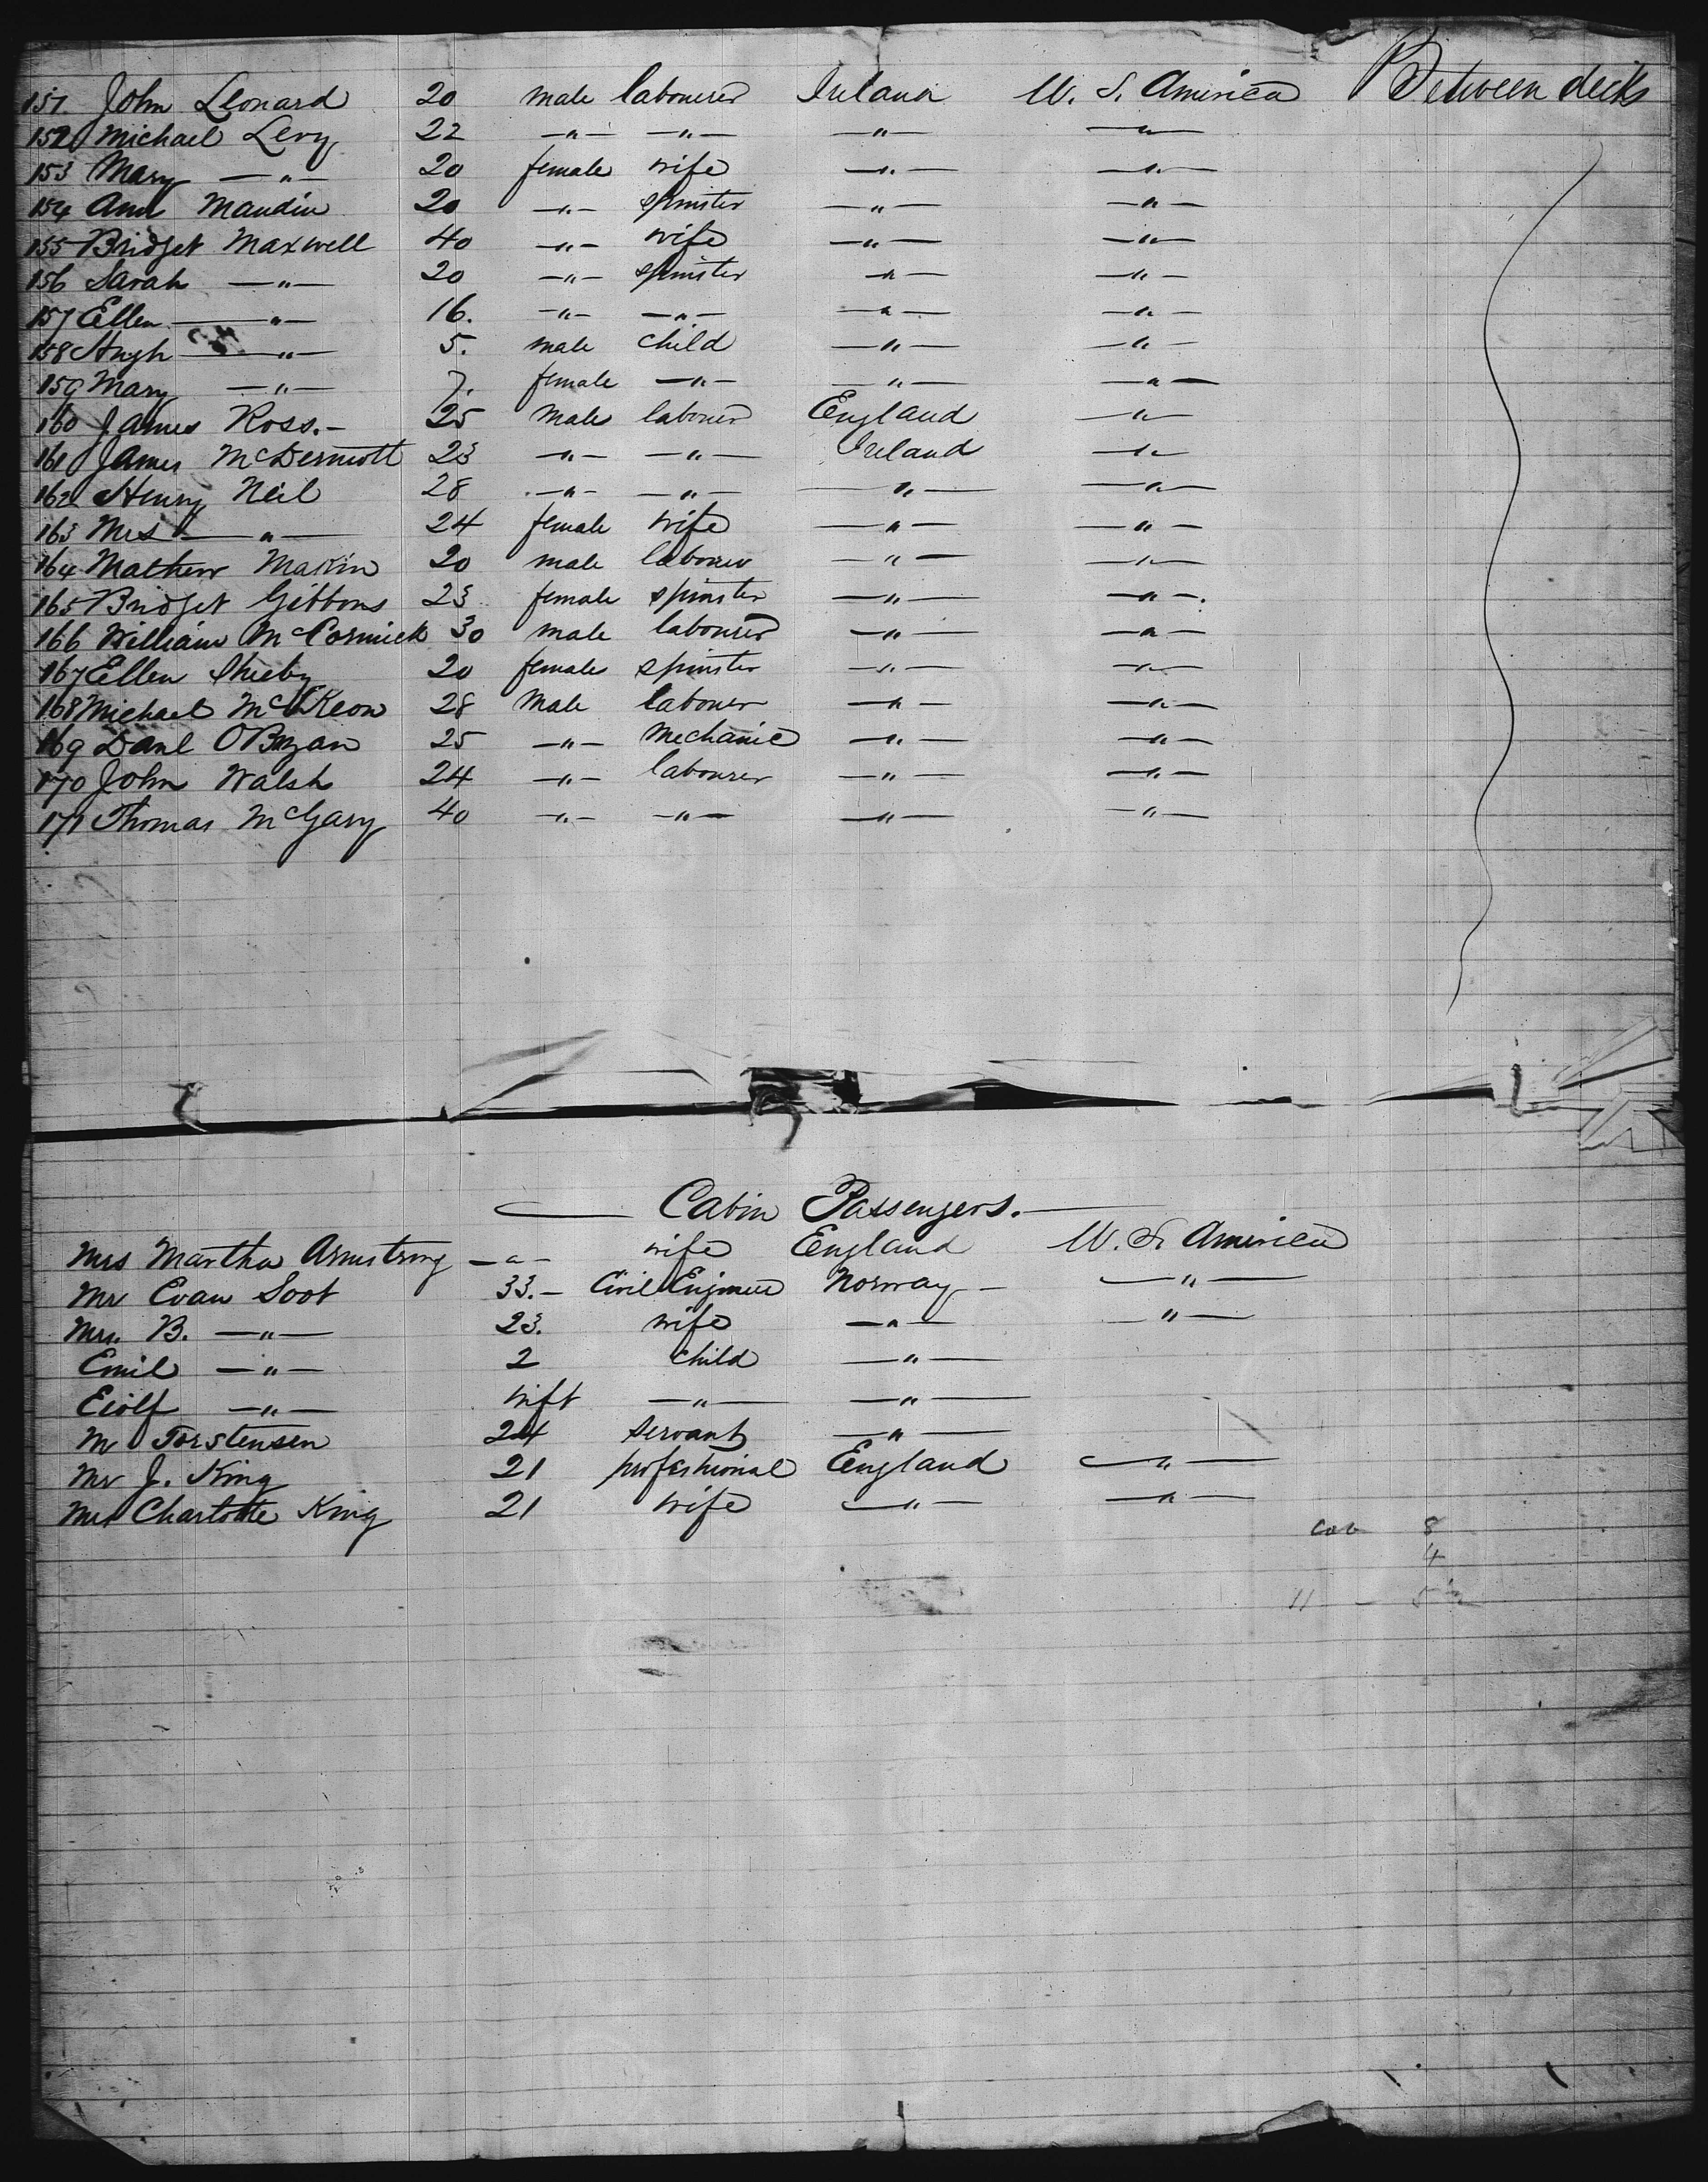 151. John Leonard 20 male labourer Ireland U. S. America Between decks
152 Michael Levy 22 —"— —"— —"— —"—
153 Mary —"— 20 female wife —"— —"—
154 Ann Maudin 20 —"— spinster —"— —"—
155 Bridget Maxwell 40 —"— wife —"— —"—
156 Sarah —"— 20 —"— spinster —"— —"—
157 Ellen —"— 16. —"— —"— —"— —"—
158 Hugh —"— 5. male child —"— —"—
159 Mary —"— 7. female —"— —"— —"—
160 James Ross.- 25 male labourer England —"—
161 James McDermott 23 —"— —"— Ireland —"—
162 Henry Neil 28 —"— —"— —"— —"—
163 Mrs —"— 24 female wife —"— —"—
164 Mathew Makin 20 male labourer —"— —"—
165 Bridget Gibbons 23 female spinster —"— —"—.
166 William McCormick 30 male labourer —"— —"—
167 Ellen 20 female spinster —"— —"—
168 Michael McKeow 28 male labourer —"— —"—
169 Danl 25 —"— Mechanic —"— —"—
170 John Walsh 24 —"— labourer —"— —"—
171 Thomas McGary 40 —"— —"— —"— —"—
Cabin Passengers.
Mrs Martha Armstrong —"— wife England U. S. America
Mr Evan Soot 33.- Civil Engineer Norway —"—
Mrs. B. —"— 23. wife —"— —"—
Emil —"— 2 child —"—
Eiolf —"— inft —"— —"—
M Torstensen 24 servant —"—
Mr J. King 21 profeshional England —"—
Mrs Charlotte King 21 wife —"— —"—
cab 8
4
11 -